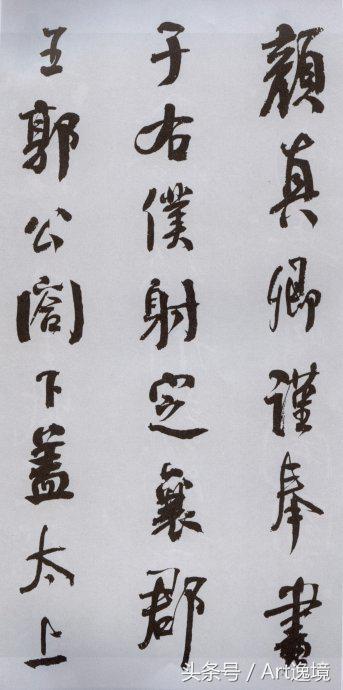 顔真卿謹奉書
于右僕射定襄郡
王郭公閤下蓋太上
头条号 / Art逸境